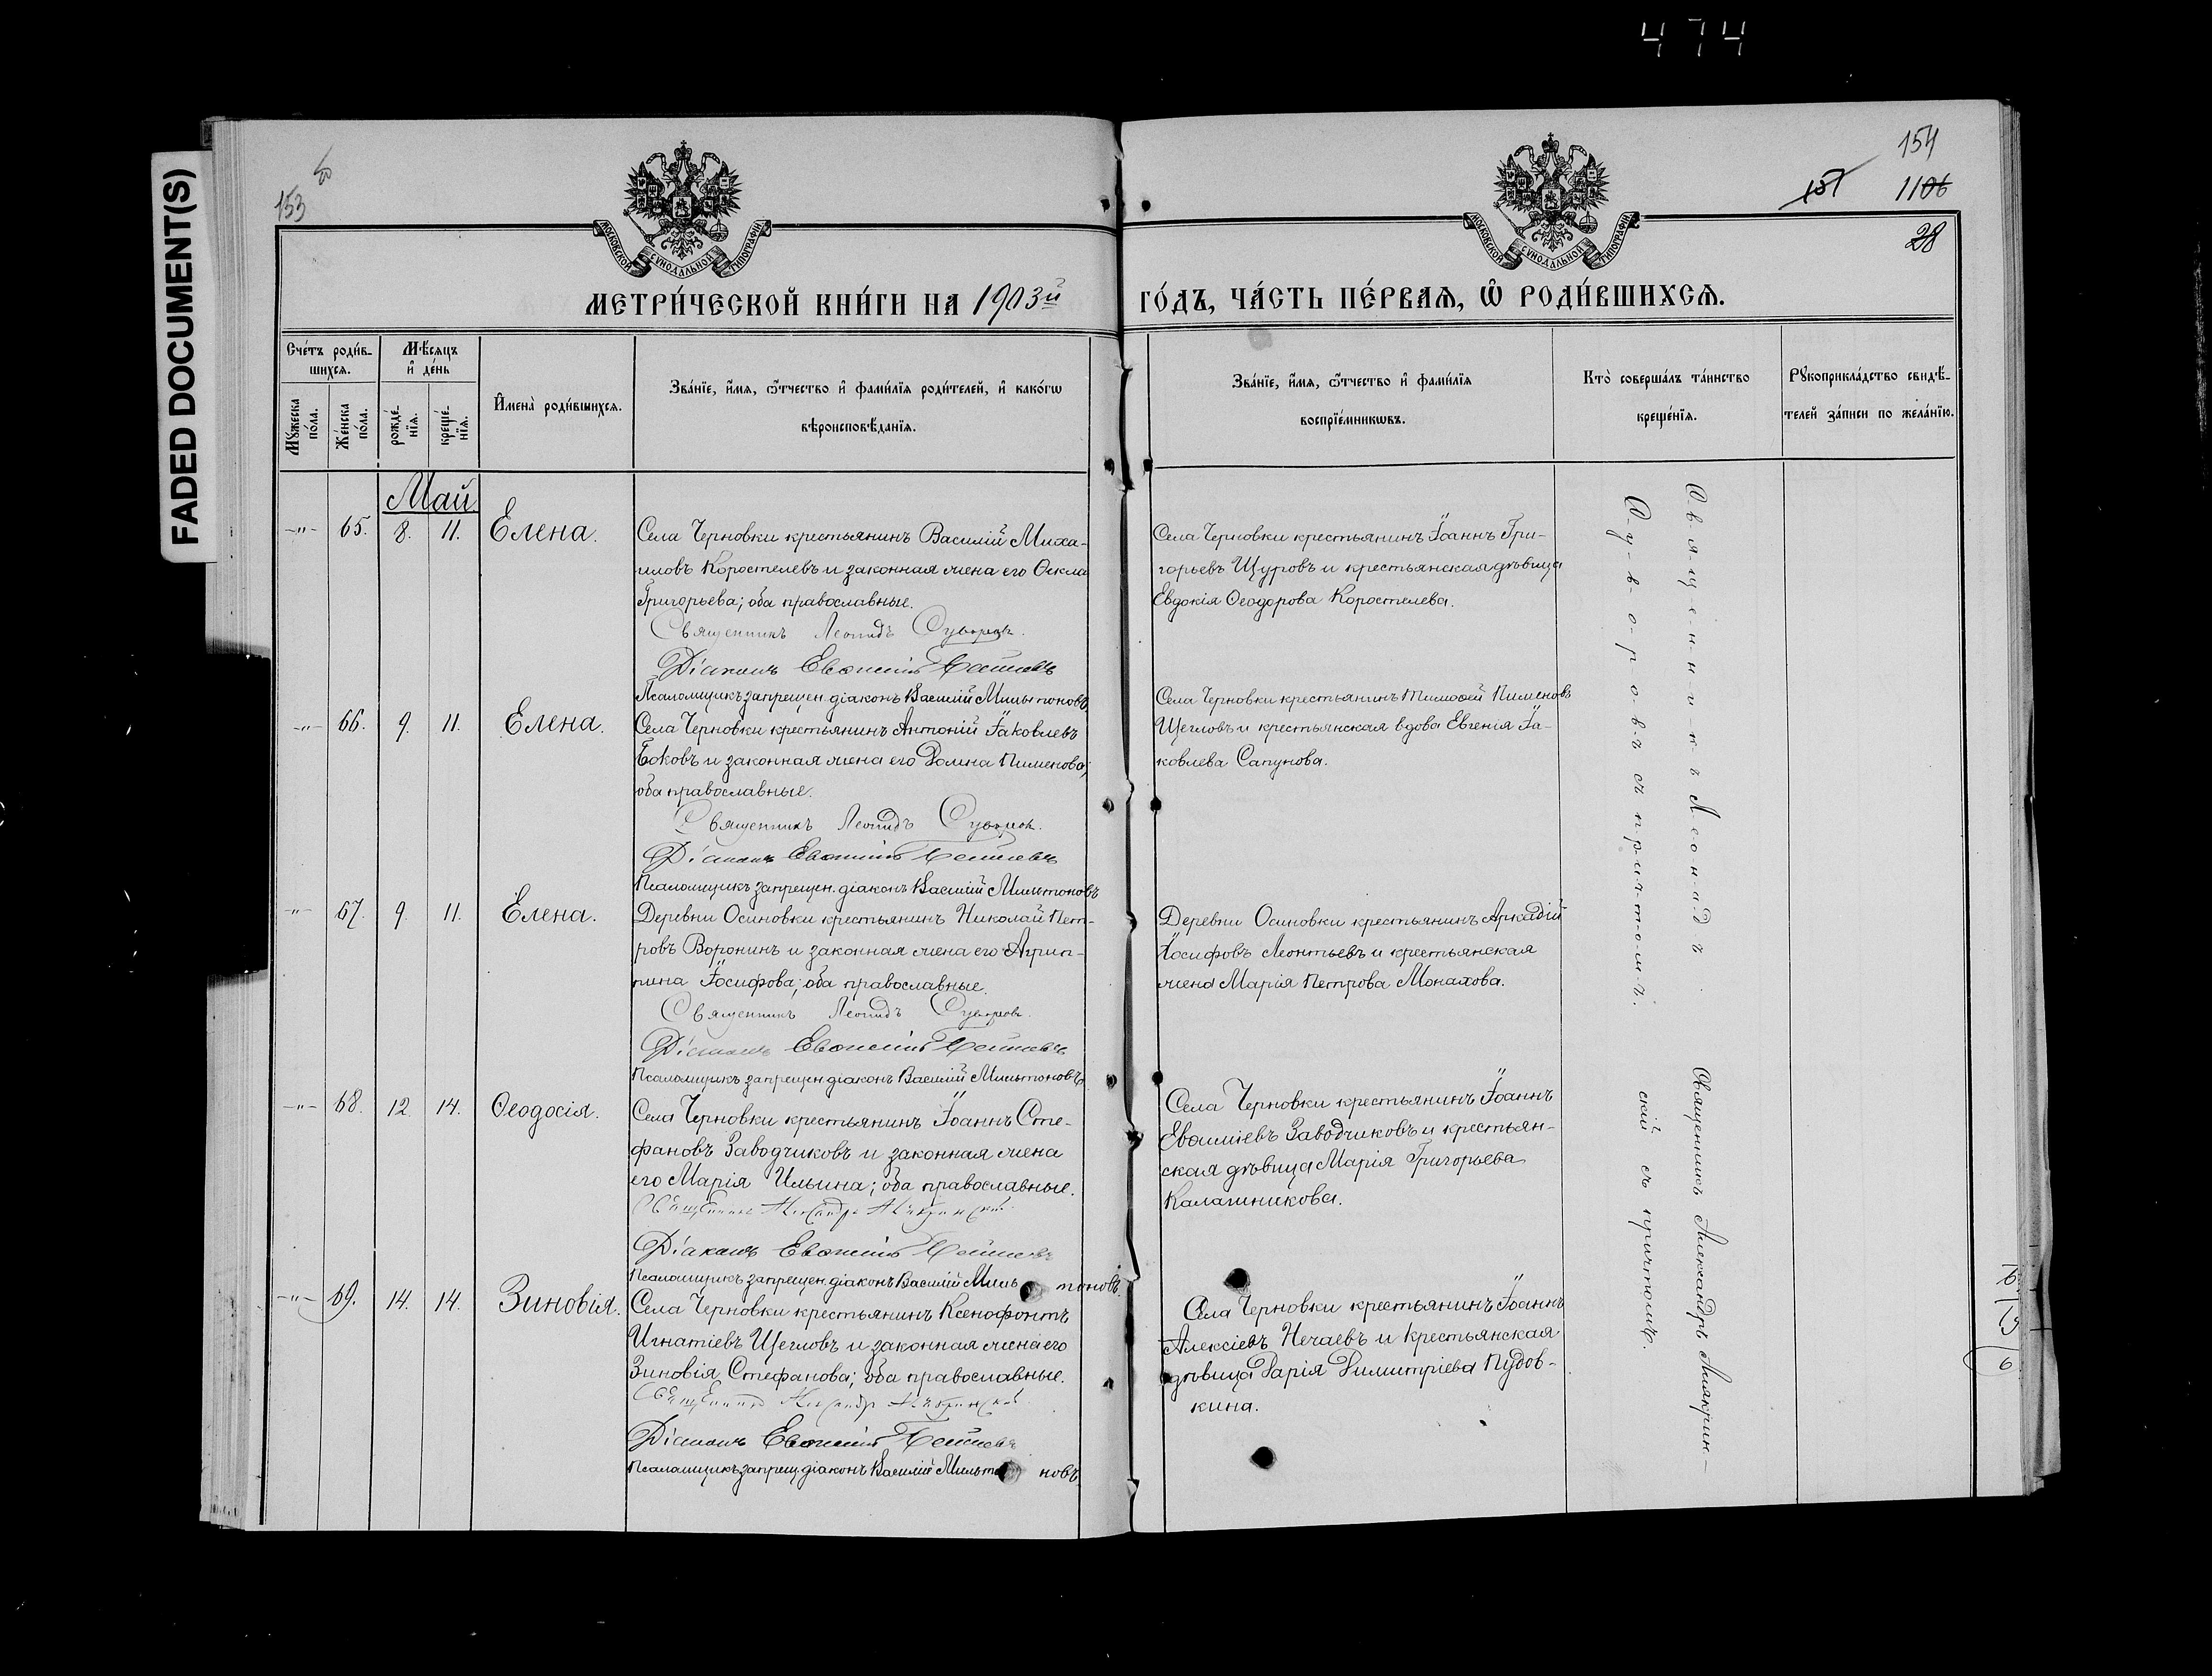 474
FADED DOCUMENT(S)
153
154
1106
28
МОСКОВСКОЙ СѴНОДАЛЬНОЙ ТИПОГРАФІИ
МОСКОВСКОЙ СѴНОДАЛЬНОЙ ТИПОГРАФІИ
МЕТРИ́ЧЕСКОЙ КНИ́ГИ НА 1903й ГО́ДЪ, ЧА́СТЬ ПЕ́РВАѦ, Ѽ РОДИ́ВШИХСѦ.
Счéтъ роди́в-
шихсѧ.
Мꙋ́жеска по́ла.
Же́нска по́ла.
Мѣ́сяцъ
и҆ де́нь
рожде́-
нїѧ.
креще́-
нїѧ.
И҆мена̀ роди́вшихсѧ.
Зва́нїе, и҆́мѧ, ѻ҆́тчество и҆ фами́лїѧ роди́телей, и҆ како́гѡ
вѣроисповѣ́данїѧ.
Зва́нїе, и҆́мѧ, ѻ҆́тчество и҆ фами́лїѧ
воспрїе́мникѡвъ.
Кто̀ соверша́лъ та́инство
креще́нїѧ.
Рꙋкоприкла́дство свидѣ́-
телей за́писи по жела́нїю.
Май
-"- 65. 8. 11. Елена.
Села Черновки крестьянинъ Василій Миха-
иловъ Коростелевъ и законная жена его Ѳекла
Григорьева; оба православные.
Священникъ Леонидъ Суворовъ.
Діаконъ Евѳимій
Псаломщикъ запрещен. діаконъ Василій Мильтоновъ
Села Черновки крестьянинъ Іоаннъ Гри-
горьевъ Щуровъ и крестьянская дѣвица
Евдокія Ѳеодорова Коростелева.
-"- 66. 9. 11. Елена.
Села Черновки крестьянинъ Антоній Іаковлевъ
Боковъ и законная жена его Домна Пименова;
оба православные.
Священникъ Леонидъ Суворовъ.
Діаконъ Евѳимій
Псаломщикъ запрещен. діаконъ Василій Мильтоновъ
Села Черновки крестьянинъ Тимоѳей Пименовъ
Щегловъ и крестьянская вдова Евгенія Іа-
ковлева Сапунова.
-"- 67. 9. 11. Елена.
Деревни Осиновки крестьянинъ Николай Пет-
ровъ Воронинъ и законная жена его Агрип-
пина Іосифова; оба православные.
Священникъ Леонидъ Суворовъ.
Діаконъ Евѳимій
Псаломщикъ запрещен. діаконъ Василій Мильтоновъ
Деревни Осиновки крестьянинъ Аркадій
Іосифовъ Леонтьевъ и крестьянская
жена Марія Петрова Монахова.
С-в-я-щ-е-н-н-и-к-ъ Л-е-о-н-и-д-ъ
С-у-в-о-р-о-в-ъ съ п-р-и-ч-т-о-м-ъ.
-"- 68. 12. 14. Ѳеодосія.
Села Черновки крестьянинъ Іоаннъ Сте-
фановъ Заводчиковъ и законная жена
его Марія Ильина; оба православные.
Священникъ Александръ
Діаконъ Евѳимій
Псаломщикъ запрещен. діаконъ Василій Мильтоновъ.
Села Черновки крестьянинъ Іоаннъ
Евѳиміевъ Заводчиковъ и крестьян-
ская дѣвица Марія Григорьева
Калашникова.
-"- 69. 14. 14. Зиновія.
Села Черновки крестьянинъ Ксенофонтъ
Игнатіевъ Щегловъ и законная жена его
Зиновія Стефанова; оба православные.
Священникъ Александръ
Діаконъ Евѳимій
Псаломщикъ запрещ. діаконъ Василій Мильтоновъ
Села Черновки крестьянинъ Іоаннъ
Алексіевъ Нечаевъ и крестьянская
дѣвица Дарія Димитріева Пудов-
кина.
Священникъ Александръ
съ причтомъ.